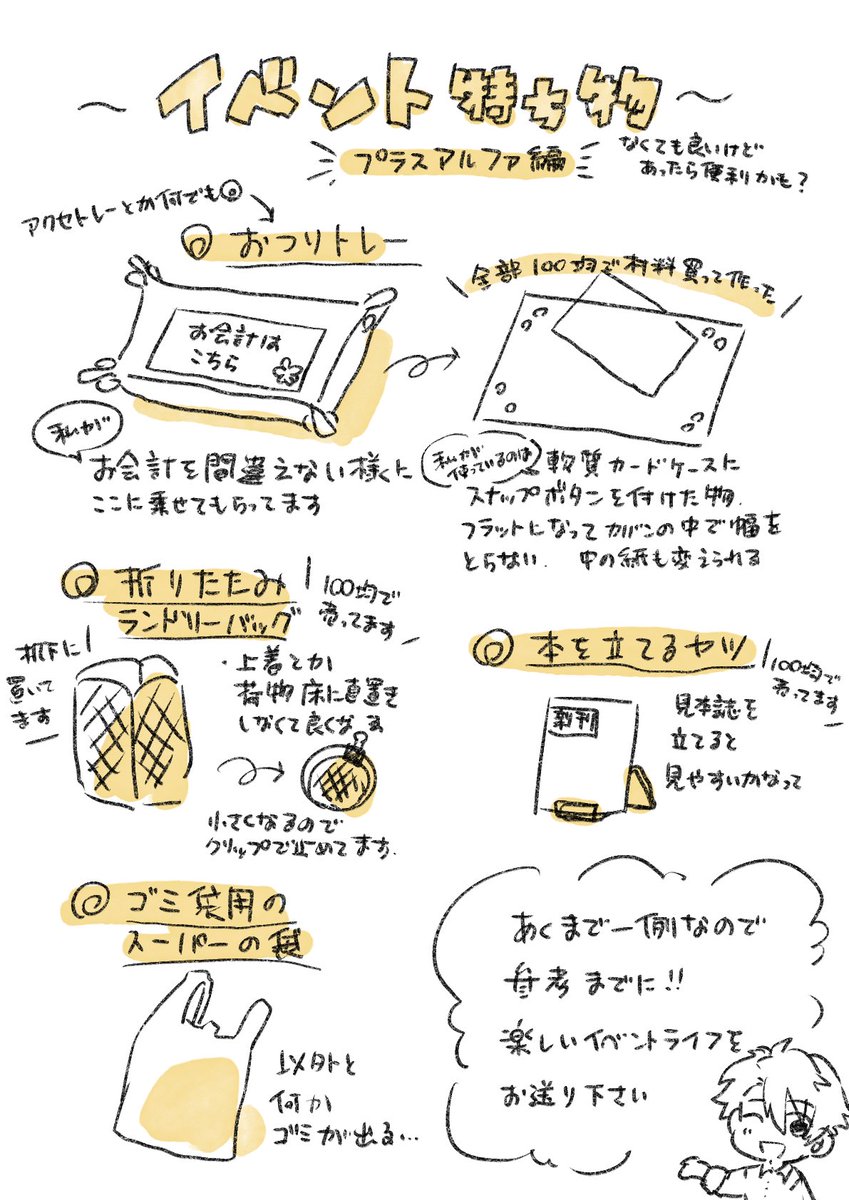 ～イベント持ち物～
プラスアルファ編
なくても良いけど
あったら便利かも？
アクセトレーとか何でも◎
◎おつりトレー
お会計は
こちら
私が
お会計を間違えない様に
ここに乗せてもらってます
全部100均で材料買って作った
私が
使っているのは
軟質カードケースに
スナップボタンを付けた物.
フラットになってカバンの中で幅を
とらない. 中の紙も変えられる
◎折りたたみ
ランドリーバッグ
100均で
売ってます
机下に
置いて
ます
・上着とか
荷物床に直置き
しなくて良くなる
小さくなるので
クリップで止めてます.
◎本を立てるヤツ
100均で
売ってます
新刊
見本誌を
立てると
見やすいかなって
◎ゴミ袋用の
スーパーの袋
以外と
何か
ゴミが出る…
あくまで一例なので
参考までに!!
楽しいイベントライフを
お送り下さい